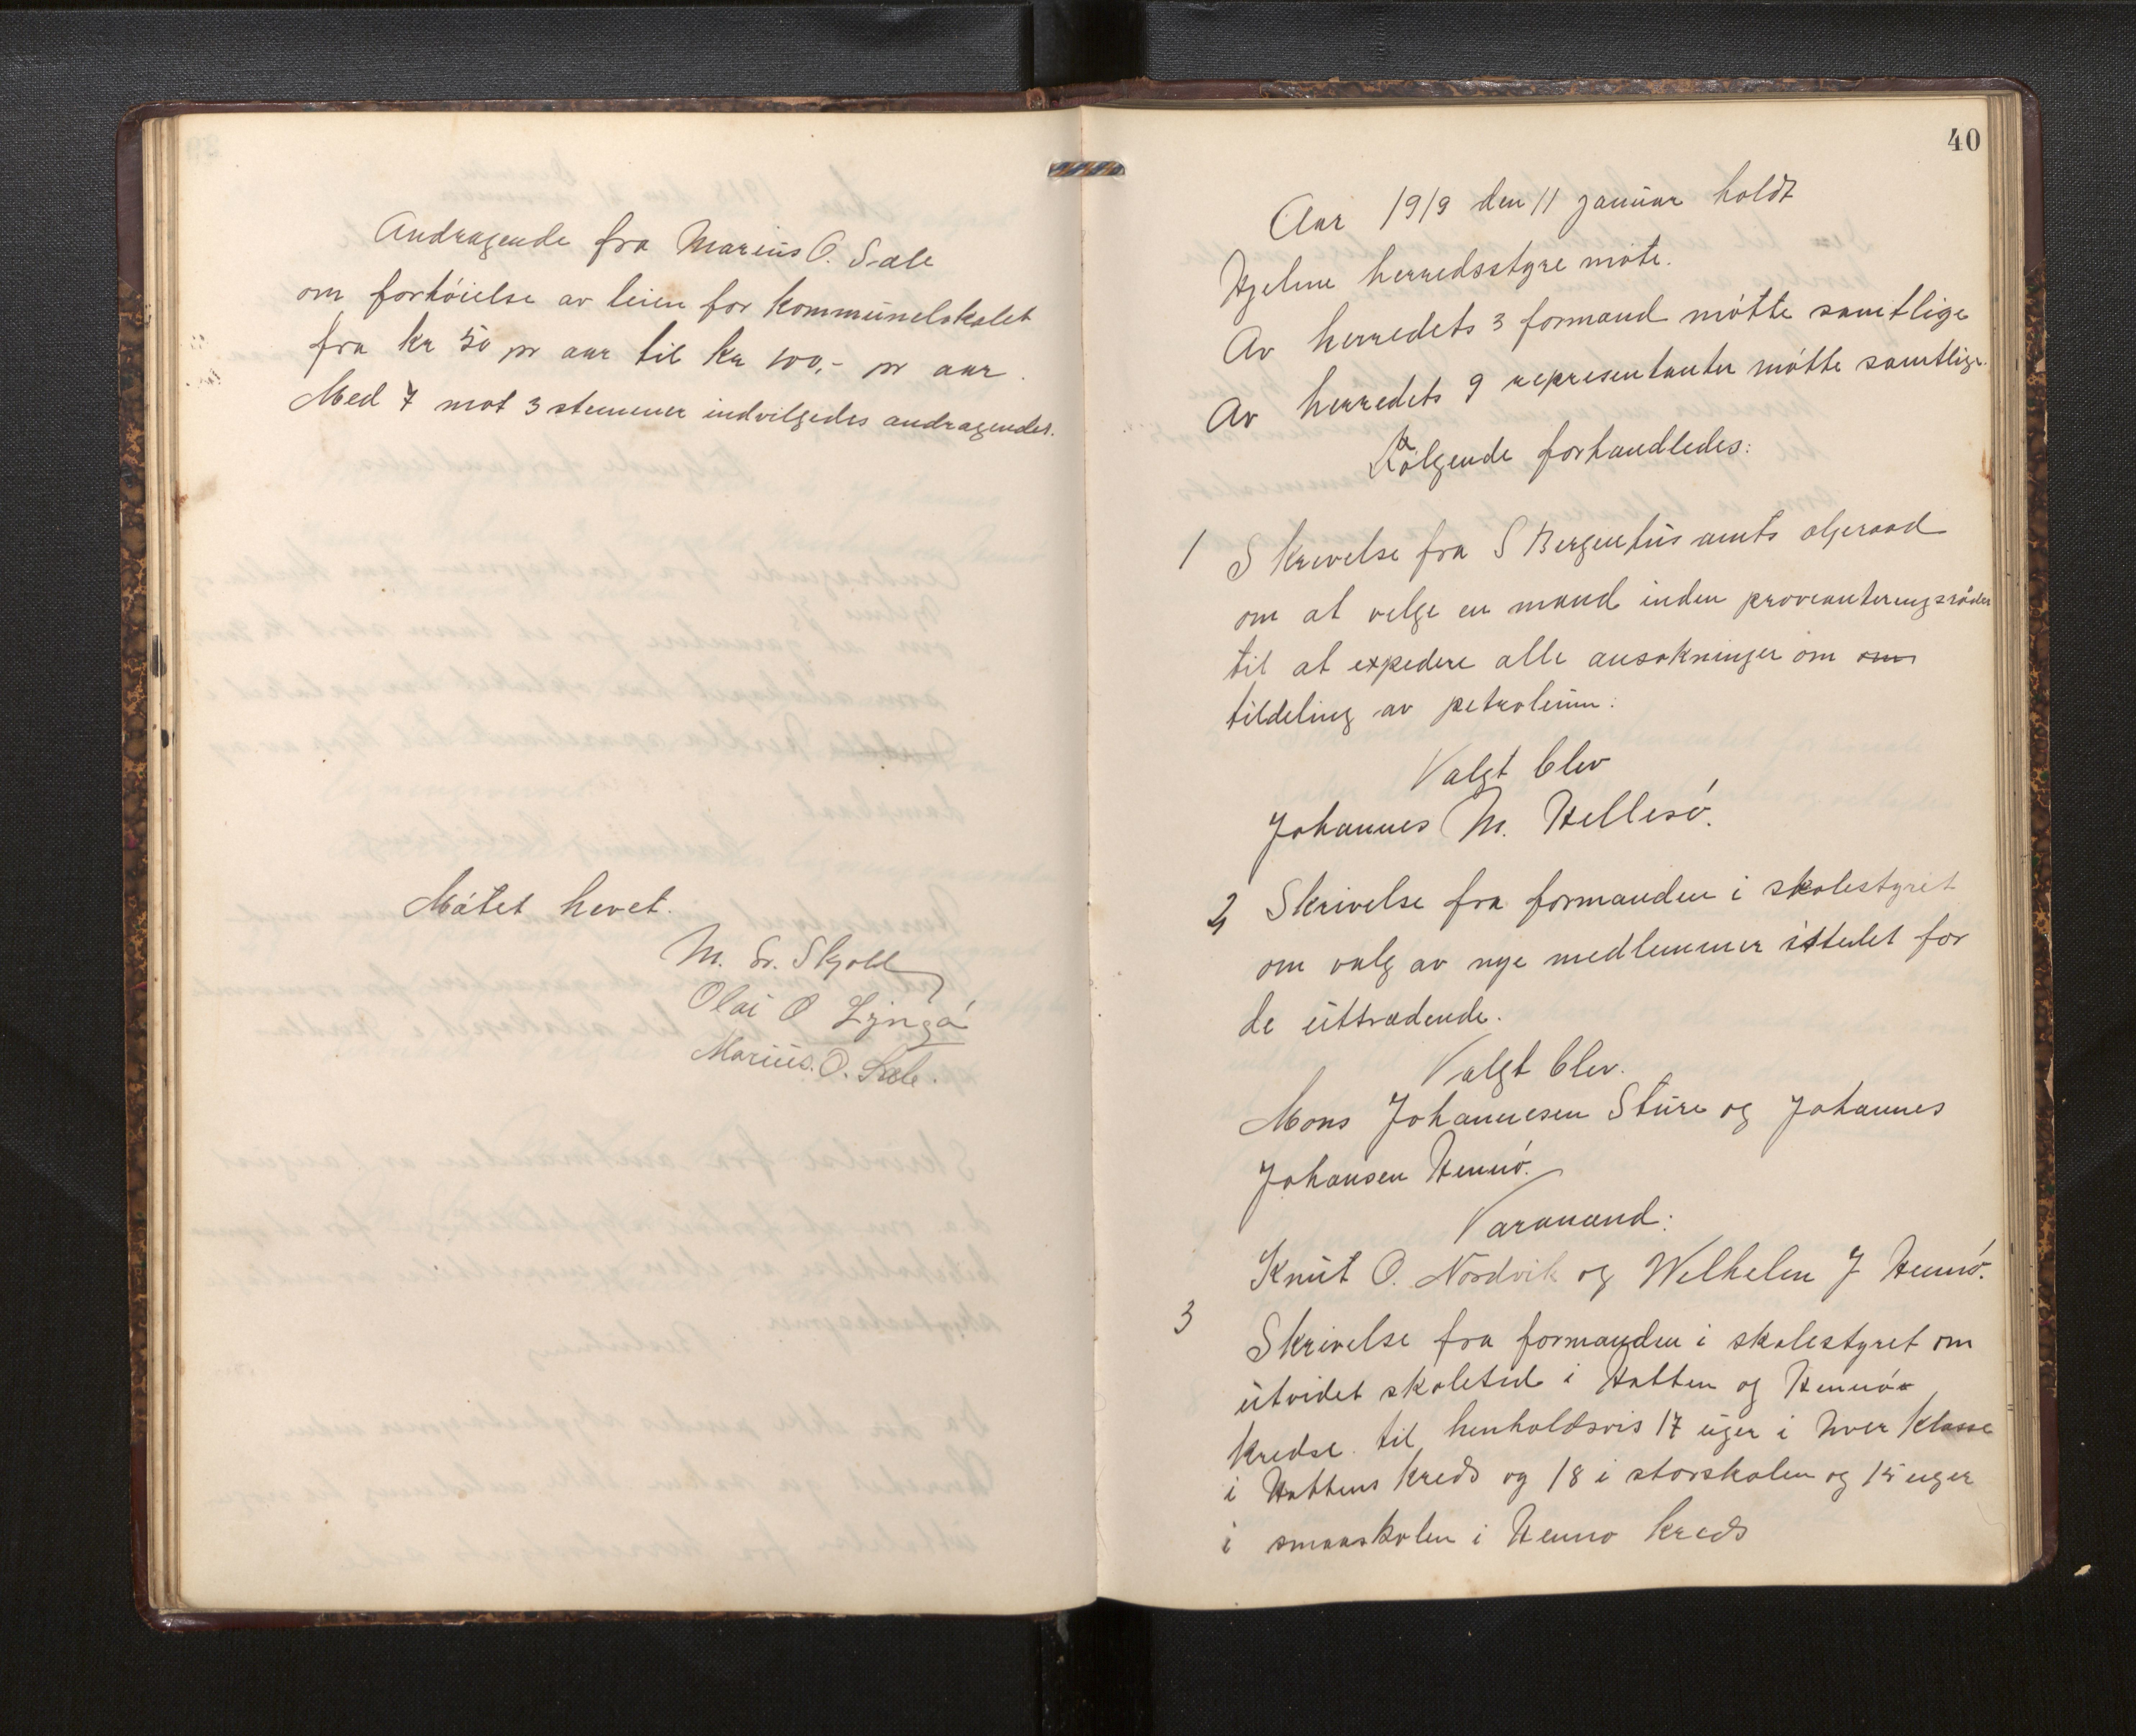 Andragende fra Marius O. Sæle
om forhöielse av leien for kommunelokalet
fra kr 50 pr aar til kr 100,- pr aar.
Med 7 mot 3 stemmer indvilgedes andragendet.
Mötet hevet.
M. Sr. Skjold
Olai O Lyngö
Marius. O. Sæle.
40
Aar 1919 den 11 januar holdt
Hjelme herredsstyre möte.
Av herredets 3 formænd mötte samtlige
Av herredets 9 representanter mötte samtlige.
Fölgende forhandledes:
1 Skrivelse fra S Bergenhus amts oljeraad
om at velge en mand inden provianteringsrådet
til at expedere alle ansøkninger om om
tildeling av petroleum:
Valgt blev
Johannes M. Hellesö.
2, Skrivelse fra formanden i skolestyret
om valg av nye medlemmer istedet for
de uttrædende.
Valgt blev.
Mons Johannesen Sture og Johannes
Johansen Hennö.
Varamænd:
Knut O. Nordvik og Wilhelm J Hennö.
3 Skrivelse fra formanden i skolestyret om
utvidet skoletid i Hatten og Hennö
kredse til henholdsvis 17 uger i hver klasse
i Hattens kreds og 18 i storskolen og 15 uger
i smaaskolen i Henno kreds